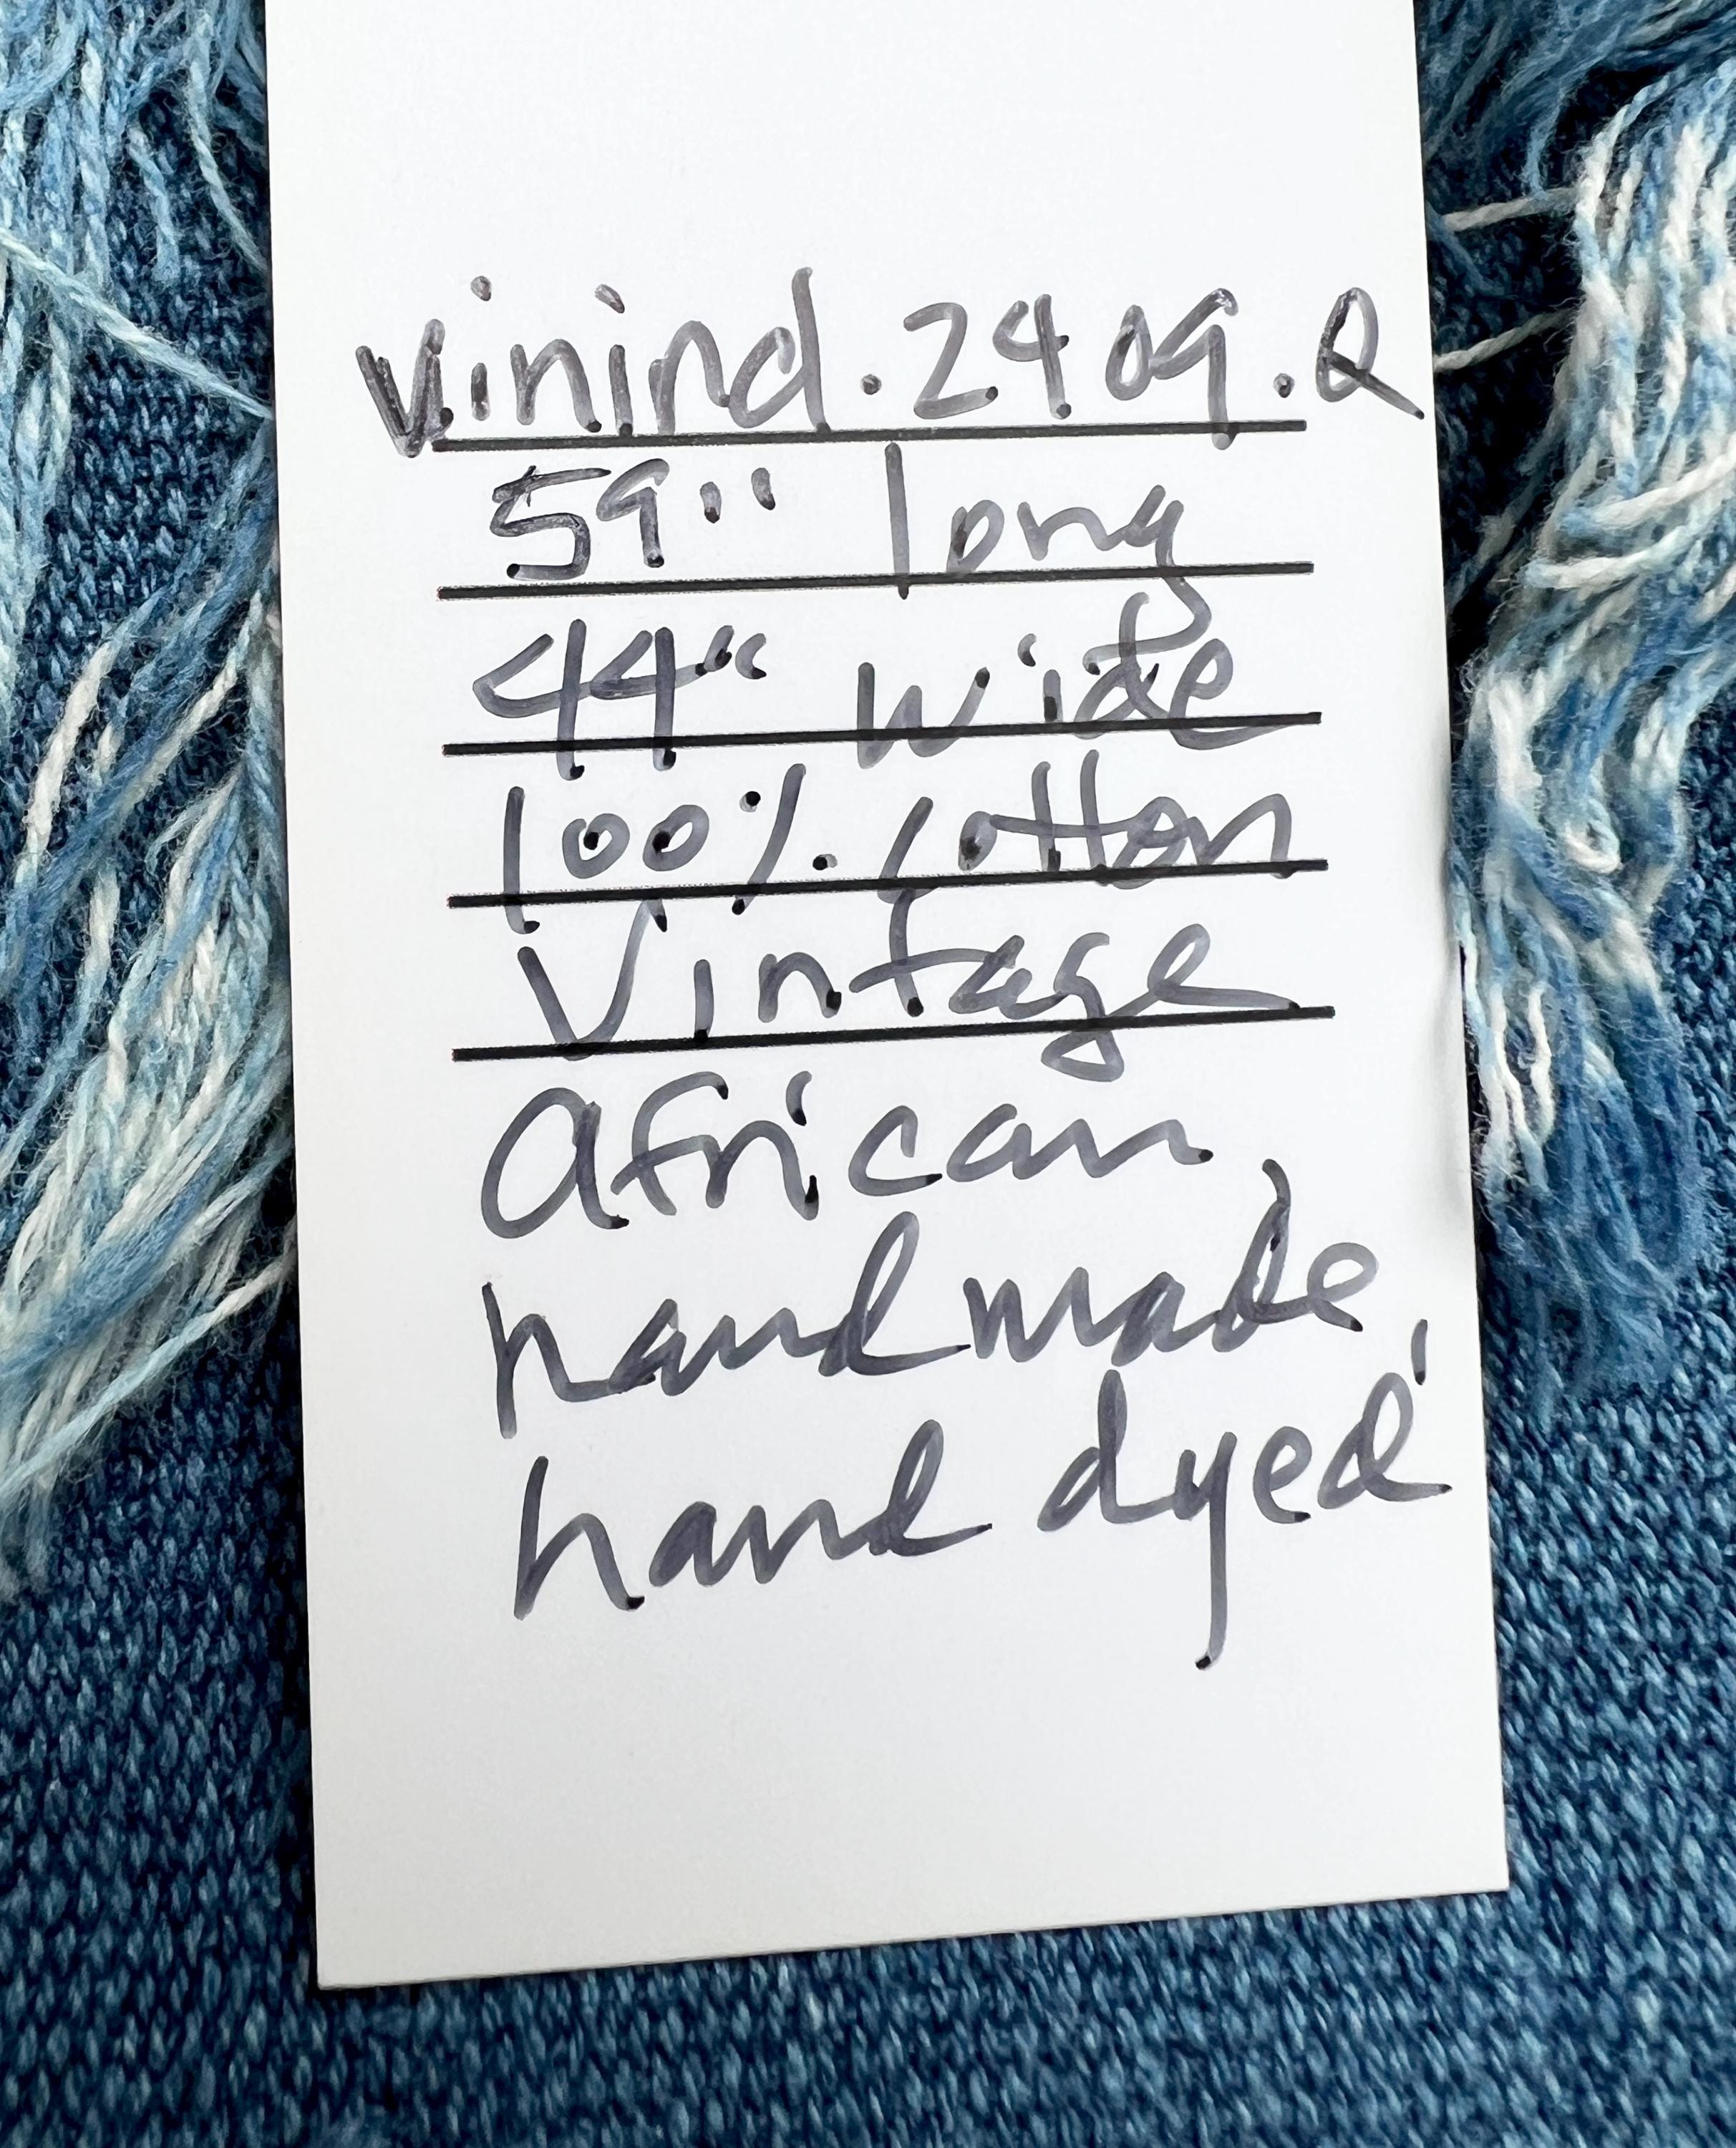 vinind.2409.Q
59" long
44" wide
100% cotton
Vintage
African,
handmade,
hand dyed